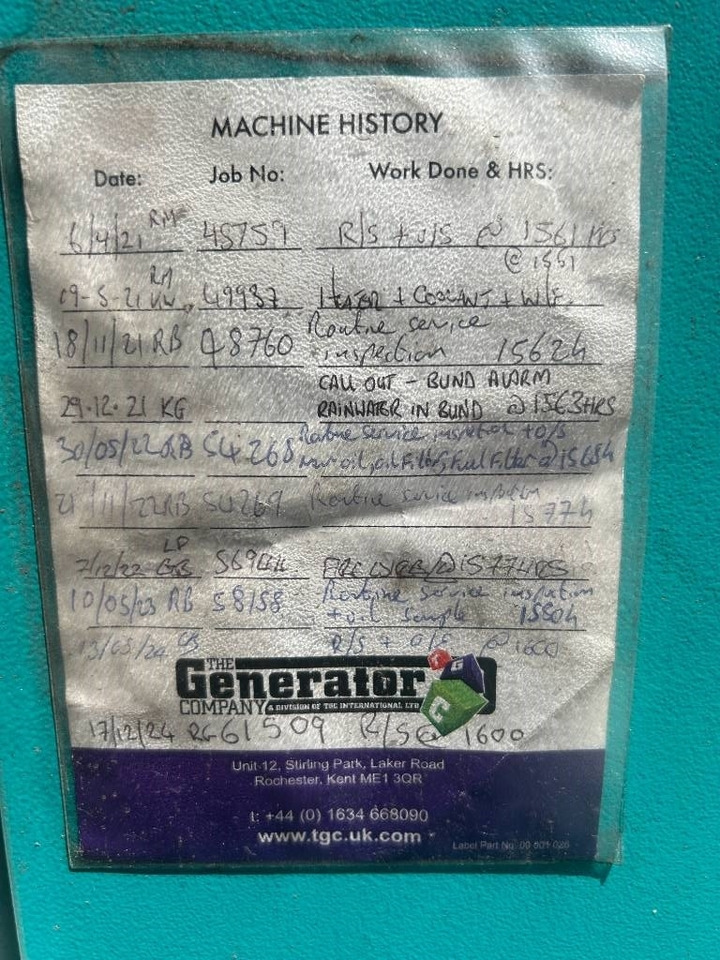 MACHINE HISTORY
Date: Job No: Work Done & HRS:
6/4/21 RM 48759 R/S + o/s @ 1561 HRS
@ 1561
RM
09-5-21 49937 HEATER + COOLANT +
18/11/21 RB 48760 Routine service
inspection 1562h
CALL OUT - BUND ALARM
29.12.21 KG RAINWATER IN BUND @ 1563HRS
30/05/22 RB 54268 Routine service inspection + o/s
oil, oil Filter, Fuel Filter @ 1568h
21/11/22 RB 54269 Routine service inspection
1577h
LP
7/12/22 @ 1577HRS
10/05/23 RB 58158 Routine service inspation
+ oil sample 1580h
13/05/24 R/S + o/s @ 1600
THE
Generator
COMPANY A DIVISION OF TGC INTERNATIONAL LTD
T G C
17/12/24 RG 61509 R/S @ 1600
Unit 12, Stirling Park, Laker Road
Rochester. Kent ME1 3QR
t: +44 (0) 1634 668090
www.tgc.uk.com
Label Part No: 00 801 026